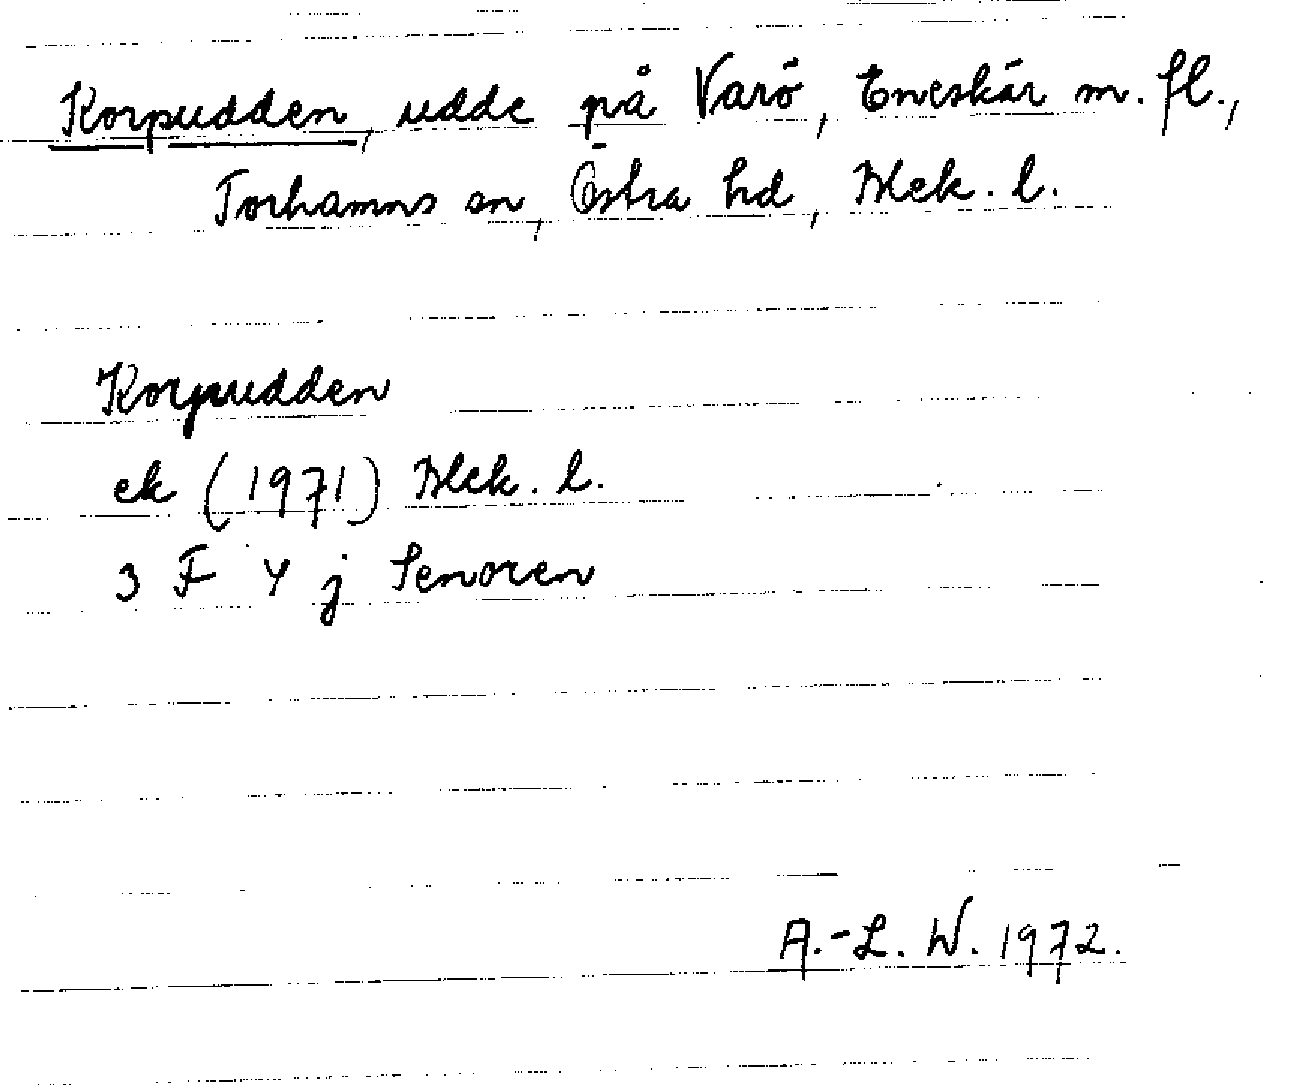 Korpudden, udde på Varö, Eneskär m. fl.,
Torhamns sn, Östra hd, Blek. l.
Korpudden
ek (1971) Blek. l.
3 F Y j Senoren
A.-L. W. 1972.